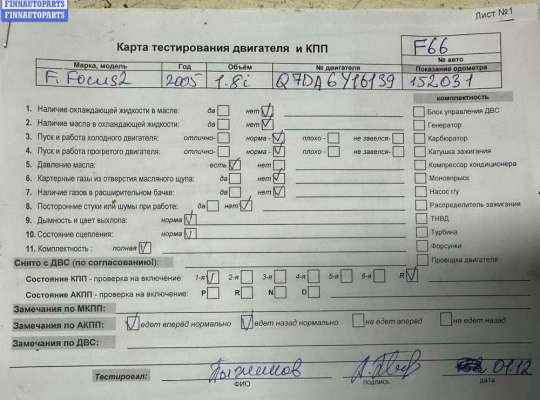 FINNAUTOPARTS
FINNAUTOPARTS
FINNAUTOPARTS
Лист №1
Карта тестирования двигателя и КПП
F66
№ авто
Марка, модель Год Объём № двигателя Показание одометра
F. Focus2 2005 1.8i Q7DA 6Y16139 152031
комплектность
1. Наличие охлаждающей жидкости в масле: да нет Блок управления ДВС
2. Наличие масла в охлаждающей жидкости: да нет Генератор
3. Пуск и работа холодного двигателя: отлично- норма - плохо - не завелся- Карбюратор
4. Пуск и работа прогретого двигателя: отлично- норма - плохо - не завелся- Катушка зажигания
5. Давление масла: есть нет Компрессор кондиционера
6. Картерные газы из отверстия масляного щупа: да нет Моновпрыск
7. Наличие газов в расширительном бачке: да нет Насос г/у
8. Посторонние стуки или шумы при работе: да нет Распределитель зажигания
9. Дымность и цвет выхлопа: норма ТНВД
10. Состояние сцепления: норма Турбина
11. Комплектность : полная Форсунки
Снято с ДВС (по согласованию!): Проводка двигателя
Состояние КПП - проверка на включение: 1-я 2-я 3-я 4-я 5-я 6-я R
Состояние АКПП - проверка на включение: P R N D
Замечания по МКПП:
Замечания по АКПП: едет вперёд нормально едет назад нормально не едет вперёд не едет назад
Замечания по ДВС:
Тестировал: 01.12
ФИО подпись дата